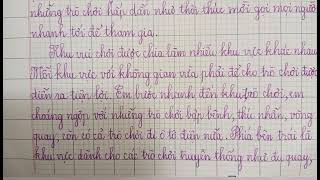 những trò chơi hấp dẫn như thôi thúc mời gọi mọi người
nhanh tới để tham gia.
Khu vui chơi được chia làm nhiều khu vực khác nhau.
Mỗi khu vực với không gian vừa phải để cho trò chơi được
diễn ra tiện lợi. Em bước nhanh đến khu trò chơi, em
choáng ngợp với những trò chơi bập bênh, thú nhún, vòng
quay, còn có cả trò chơi đi ô tô điện nữa. Phía bên trái là
khu vực dành cho các trò chơi truyền thống như đu quay,